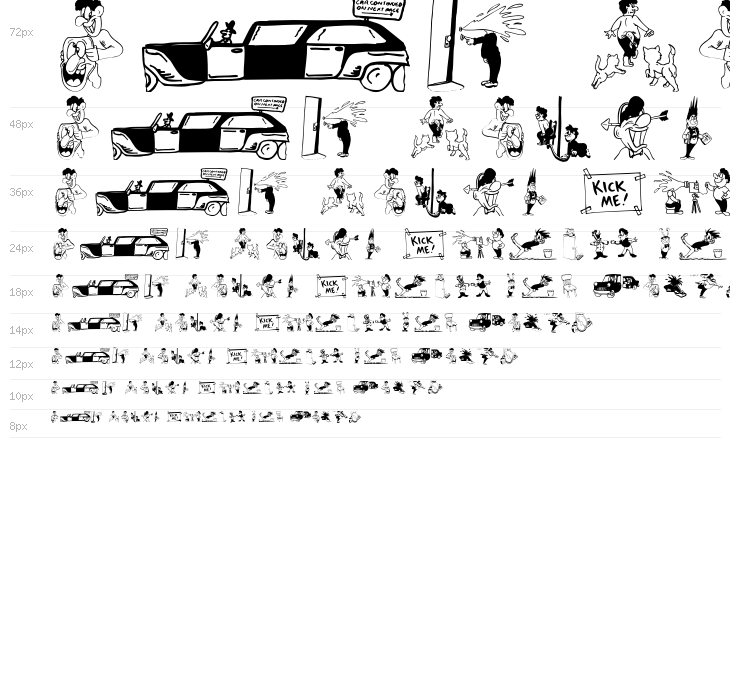 72px
CAR CONTINUED
ON NEXT PAGE
48px
CAR CONTINUED
ON NEXT PAGE
36px
CAR CONTINUED
ON NEXT PAGE
KICK
ME!
24px
KICK
ME!
18px
KICK
ME!
14px
KICK
ME!
12px
KICK
ME!
10px
KICK
ME!
8px